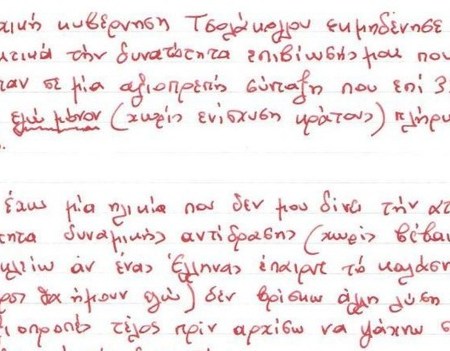 ική κυβέρνηση Τσολάκογλου εκμηδένησε
κτικά την δυνατότητα επιβίωσής μου που
ταν σε μία αξιοπρεπή σύνταξη που επί 3
εγώ μόνον (χωρίς ενίσχυση κράτους) πλήρω
έχω μία ηλικία που δεν μου δίνει την ατ
ητα δυναμικής αντίδρασης (χωρίς βέβαι
κλείω άν ένας Έλληνας έπαιρνε το καλάσν
ρος θα ήμουν εγώ) δεν βρίσκω άλλη λύση
ιοπρεπές τέλος πρίν αρχίσω να ψάχνω σ